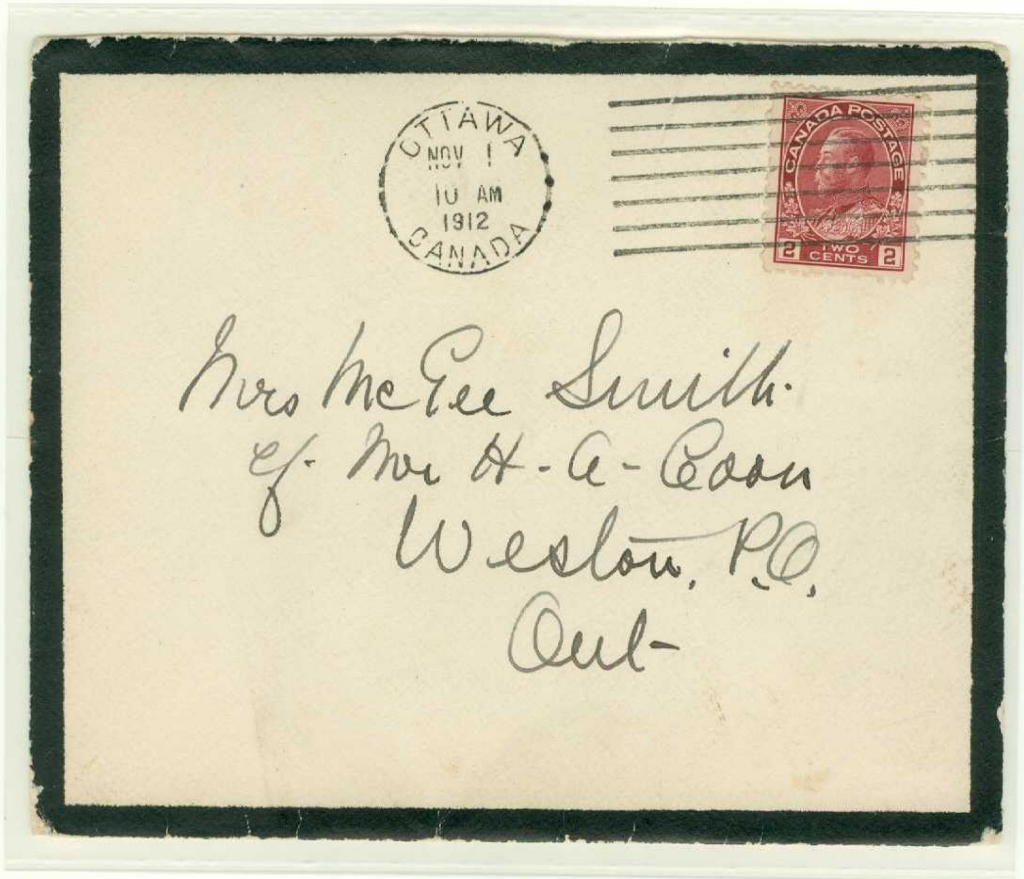 OTTAWA
NOV 1
10 AM
1912
CANADA
CANADA POSTAGE
2 TWO CENTS 2
Mrs McGee Smith.
c/- Mr H-A-Coon
Weston, P.O.
Ont-